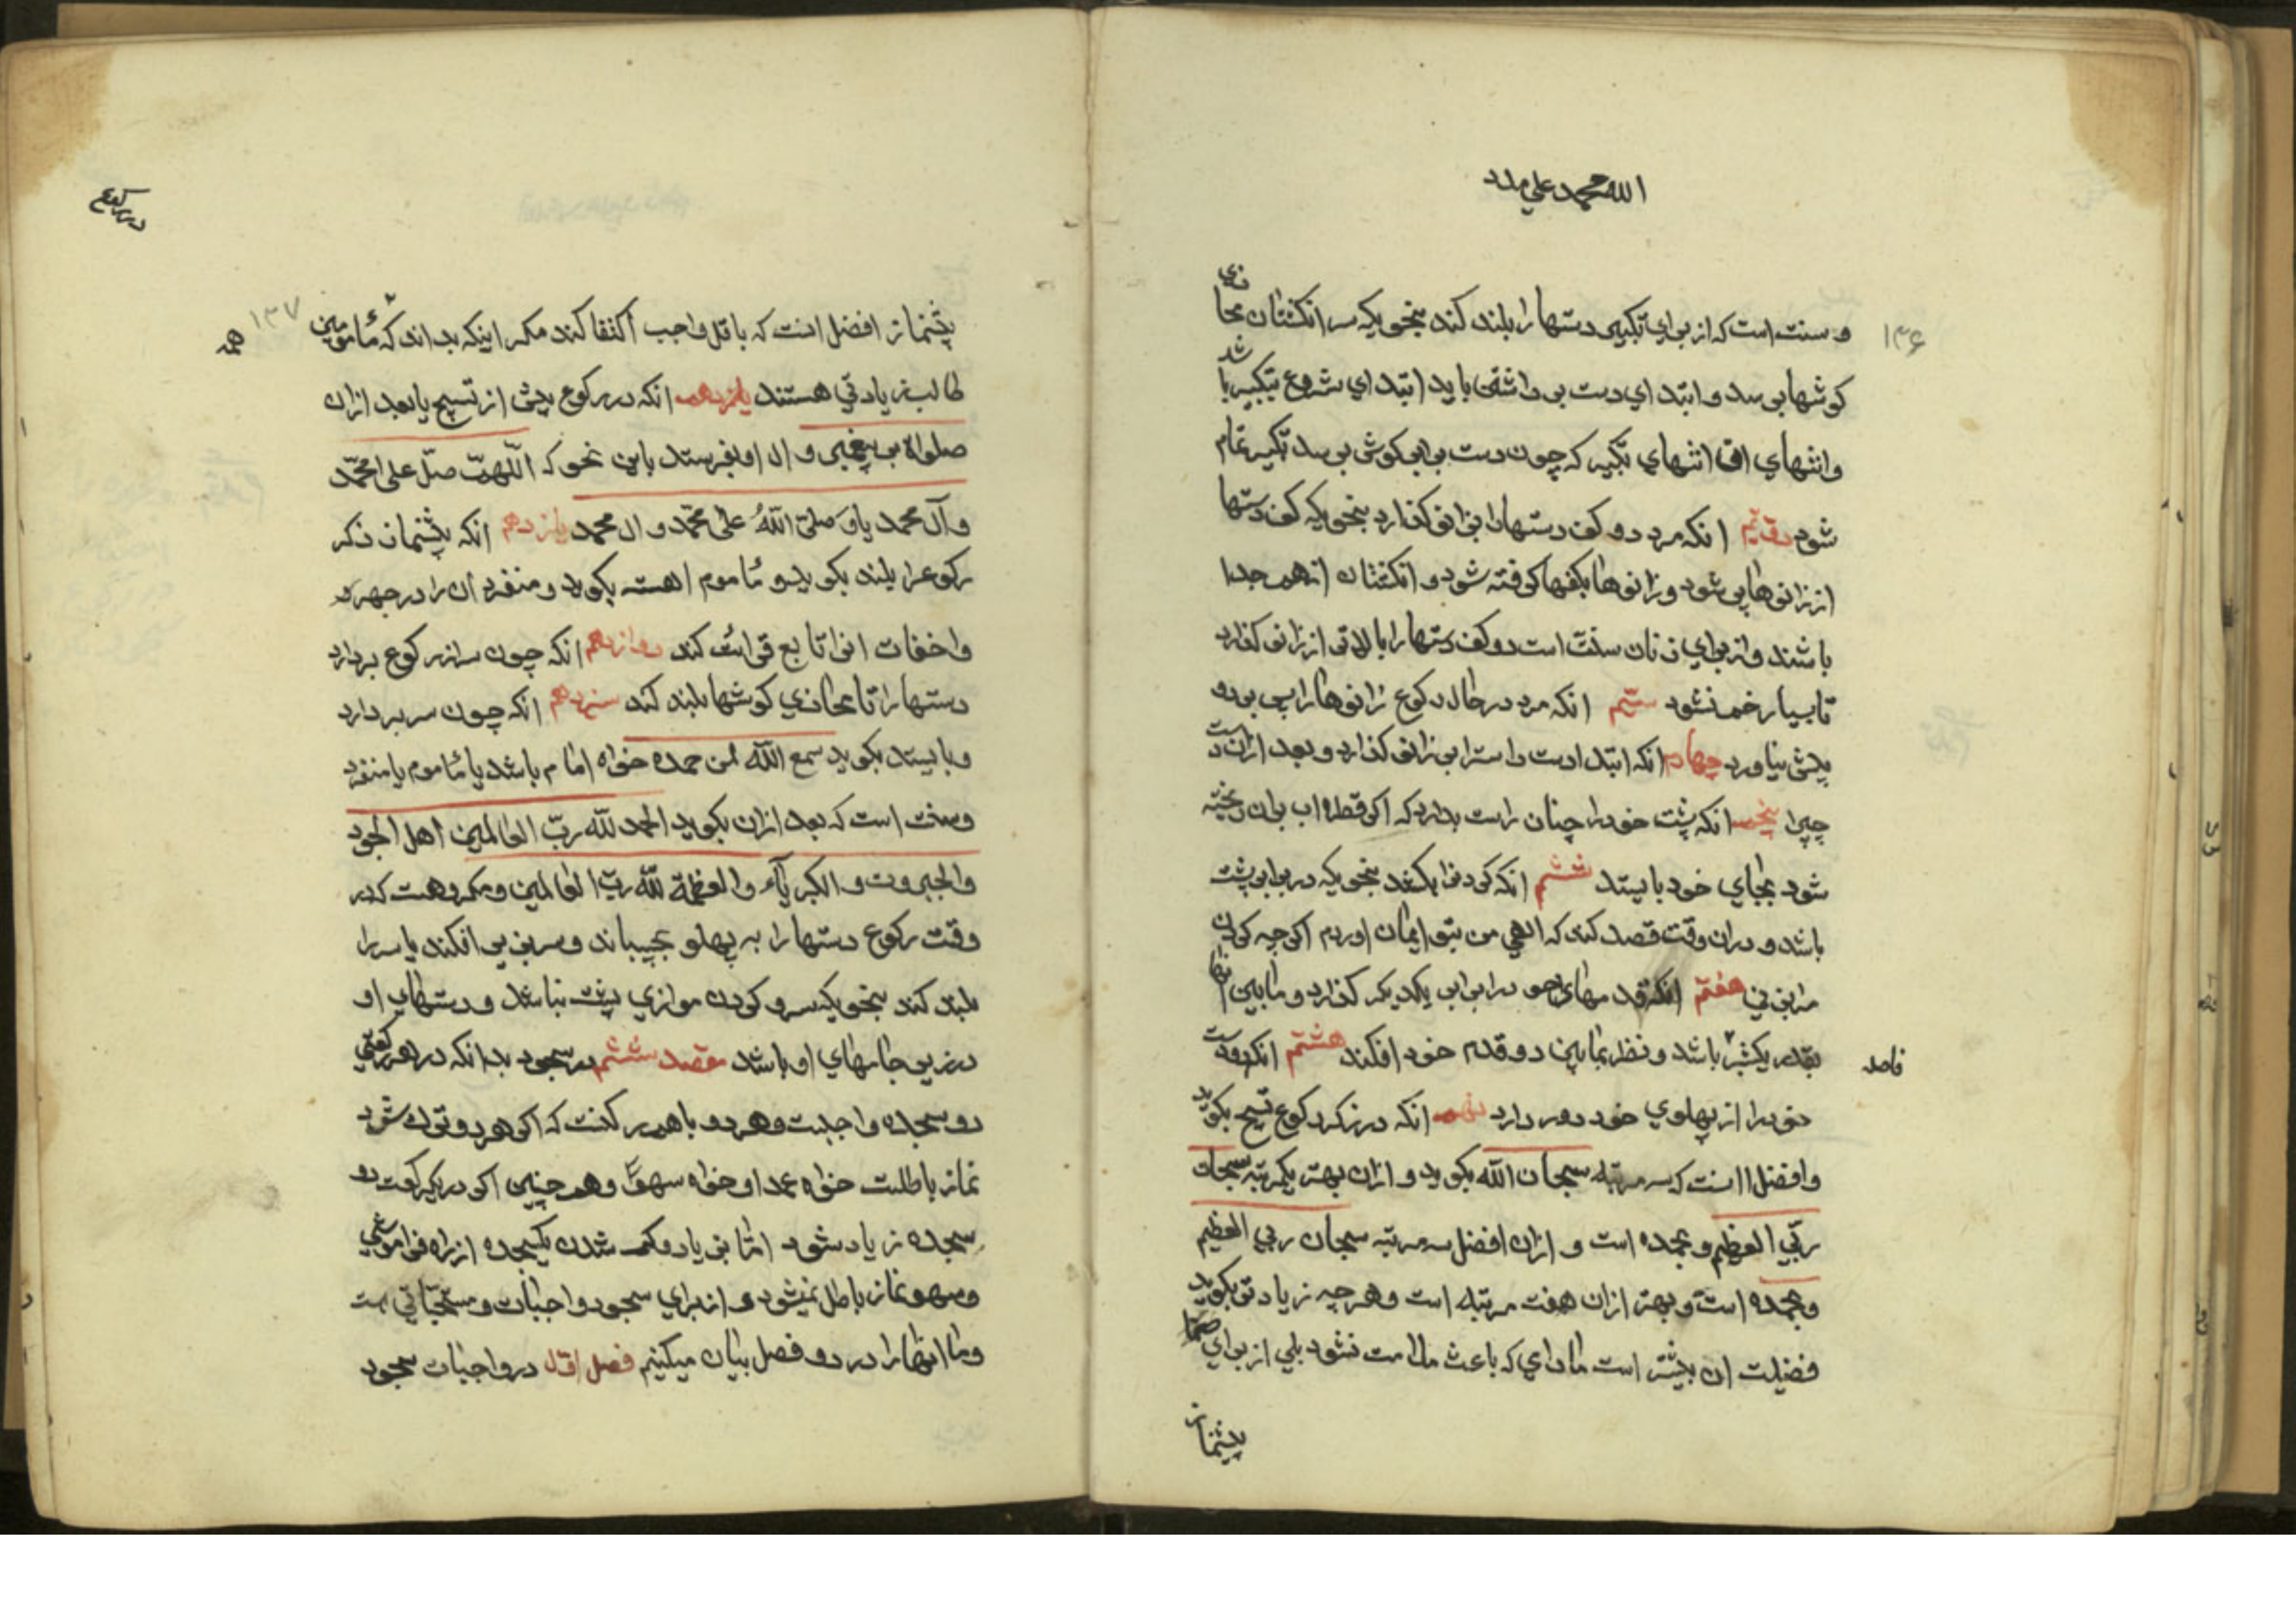 الله محمد علی مدد
۱۳۶
و سنت است که از برای تکبیر دستها را بلند کند بنحویکه سر انکشتان محاذی
کوشها برسد و ابتدای دست برداشتن باید ابتدای شروع بتکبیر باشد
وانتهای ان انتهای تکبیر که چون دست برابر کوش برسد تکبیر تمام
شود دویّم انکه مرد دو کف دستها را بزانو کذارد بنحویکه کف دستها
از زانوها پر شود و زانوها بکفها کرفته شود و انکشتان از هم جدا
باشند و از برای زنان سنّت است دو کف دستها را بالاتر از زانو کذارد
تا بسیار خم نشود سیّم انکه مرد در حال رکوع زانوها را پس برد و
پیش نیاورد چهارم انکه ابتدا دست راست را بر زانو کذارد و بعد ازان دست
چپ را پنجم انکه پشت خود را چنان راست بدارد که اکر قطره اب بران ریخته
شود بجای خود بایستد ششم انکه کردن را بکشد بنحویکه در برابر پشت
باشد و دران وقت قصد کند که الهی من بتو ایمان اوردم اکر چه کردن
مرا بزنی هفتم انکه قدمهای خود در برابر یکدیکر کذارد و مابین انها
بقدر یکشبر باشد و نظر بمابین دو قدم خود افکند هشتم انکه دو دست
فاصله
خود را از پهلوی خود دور دارد نهم انکه در ذکر رکوع تسبیح بکوید
وافضل انست که سه مرتبه سبحان الله بکوید و ازان بهتر یکمرتبه سبحان
ربّی العظیم و بحمده است و ازان افضل سه مرتبه سبحان ربی العظیم
وبحمده است و بهتر ازان هفت مرتبه است و هر چه زیادتر بکوید
فضیلت ان بیشتر است مادامی که باعث ملامت نشود بلی از برای
پیشنماز
در رکوع
۱۳۷
همه
پیشنماز افضل انست که باقل واجب اکتفا کند مکر اینکه بداند که مأمومین
طالب زیادتی هستند یازدهم انکه در رکوع پیش از تسبیح یا بعد ازان
صلواة بر پیغمبر و ال او بفرستد باین نحو که اللّهمّ صلّ علی محمّد
وآل محمد یا وصلّی اللّهُ علی محمّد و ال محمد یازدهم انکه پیشنماز ذکر
رکوع را بلند بکوید و مأموم اهسته بکوید و منفرد ان را در جهر
واخفات انرا تابع قرائت کند دوازدهم انکه چون سر از رکوع بردارد
دستها را تا محاذی کوشها بلند کند سیزدهم انکه چون سر بردارد
وبایستد بکوید سمع اللّه لمن حمده خواه امام باشد یا مأموم یا منفرد
وسنت است که بعد ازان بکوید الحمد للّه ربّ العالمین اهل الجود
والجبروت و الکبریآء والعظمة للّه ربّ العالمین و مکروهست که در
وقت رکوع دستها را به پهلو بچسباند و سر بزیر افکند یا سر را
بلند کند بنحویکه سر و کردن موازی پشت نباشد و دستهای او
در زیر جامهای او باشد مقصد ششم در سجود بدانکه در هر رکعتی
دو سجده واجبست و هر دو با هم رکنست که اکر هر دو ترک شود
نماز باطلست خواه عمدا و خواه سهوًا و همچنین اکر در یکرکعت دو
سجده زیاد شود امّا بزیاد و کم شدن یکسجده از راه فراموشی
وسهو نماز باطل نمیشود و از برای سجود واجبات و مستحبّاتی هست
وما انها را در دو فصل بیان میکنیم فصل اوّل در واجبات سجود